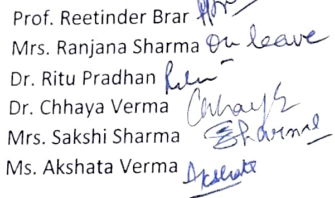 Prof. Reetinder Brar
Mrs. Ranjana Sharma On leave
Dr. Ritu Pradhan
Dr. Chhaya Verma Chhaya
Mrs. Sakshi Sharma Sharma
Ms. Akshata Verma Akshata